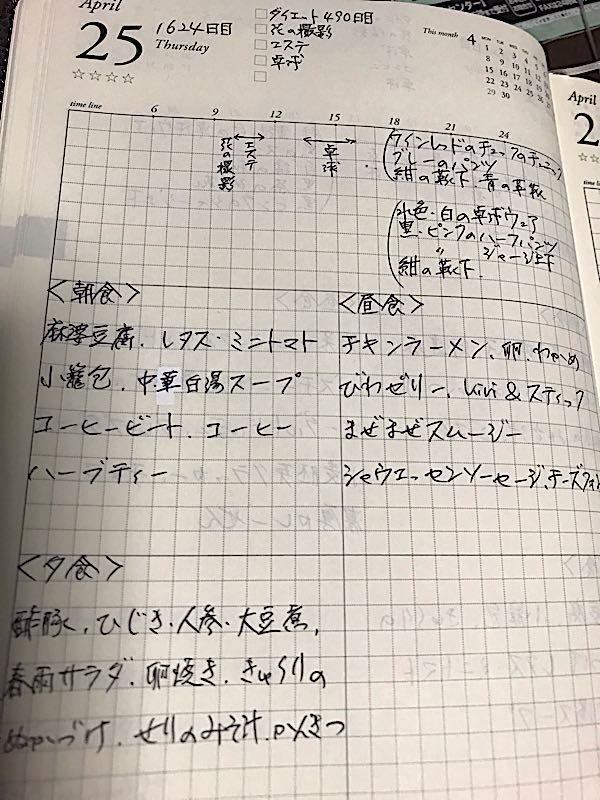 April
25
1624日目
Thursday
☆☆☆☆
□ダイエット490日目
□弦の撮影
□エステ
□卓球
□
This month 4
MON TUE WED THU FRI
1 2 3 4 5
8 9 10 11 12
15 16 17 18
22 23 24 25
29 30
April
2
time line 6 9 12 15 18 21 24
弦の撮影
エステ
卓球
ワインレッドのチェックのチュニック
グレーのパンツ
紺の靴下・青の革靴
水色・白の卓球ウェア
黒・ピンクのハーフパンツ
〃 ジャージ上下
紺の靴下
<朝食>
麻婆豆腐、レタス・ミニトマト
小籠包、中華白湯スープ
コーヒービート、コーヒー
ハーブティー
<昼食>
チキンラーメン、卵、わかめ
びわゼリー、kiri&スティック
まぜまぜスムージー
シャウエッセンソーセージ、チーズ
<夕食>
酢豚、ひじき・人参・大豆煮、
春雨サラダ、卵焼き、きゅうりの
ぬかづけ、せりのみそ汁、かんきつ